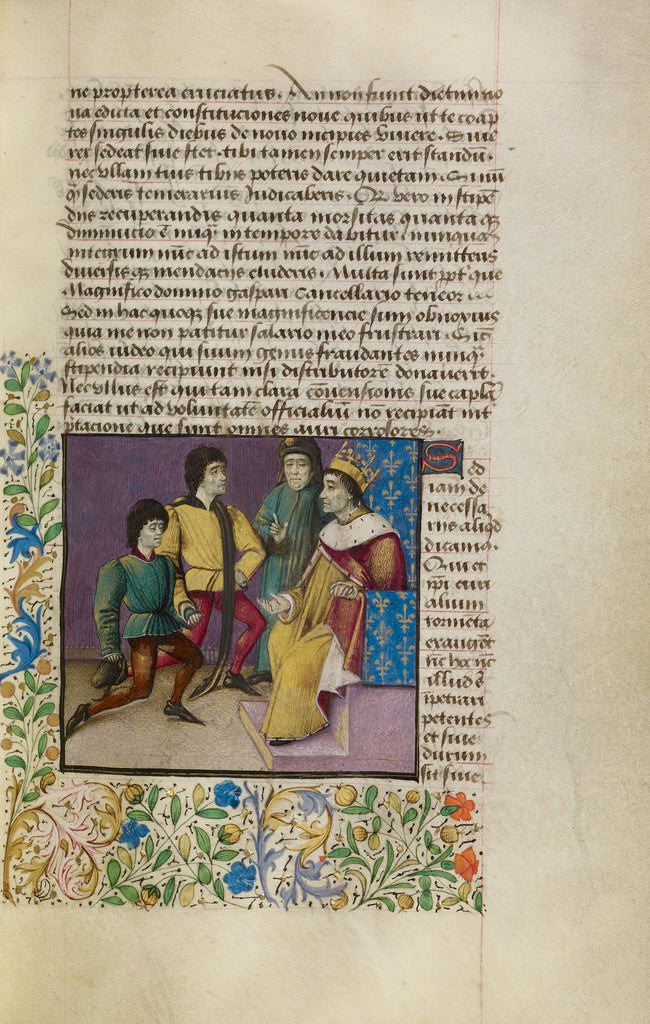 ne propterea cruciatus. An non sunt dietim no
ua edicta et constituciones noue quibus ut te coap
tes singulis diebus de nouo incipies viuere. Siue
rex sedeat siue stet. tibi tamen semper erit standū.
nec vllam tuis tibiis poteris dare quietam. Si
sederis temerarius Judicaberis. vero in stipē
diis recuperandis quanta morsitas quanta q̄
diminucio ē nūq̄ in tempore dabitur. nunquaꝫ
integrum nūc ad istum nūc ad illum remitteris
diuersis q̄ mendaciis eluderis. Multa sunt ppt̄ que
Magnifico domino gaspari Cancellario teneor
Sed in hac quoq̄ sue magnificencie sum obnoxius
quia me non patitur salario meo frustrari. Sic̄
alios video qui suum genus fraudantes nunq̄
stipendia recipiunt nisi distributorē donauerīt.
Nec vllus est qui tam clara cōuensionis sue capl̄a
faciat ut ad voluntatē officialiū nō recipiat int̄
p̄tacione que sunt omnes auri corrosores.
Sed
iam de
necessa
riis aliqd
dicamꝰ.
Qui et
ip̄i curi
alium
tormēta
exaugēt
n̄c hoc n̄c
illud ē
īpetrari
petentes
et siue
durum
sit siue